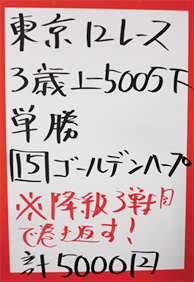 東京12レース
3歳上500万下
単勝
15 ゴールデンハープ
※降級3戦目
で巻き返す!
計5000円